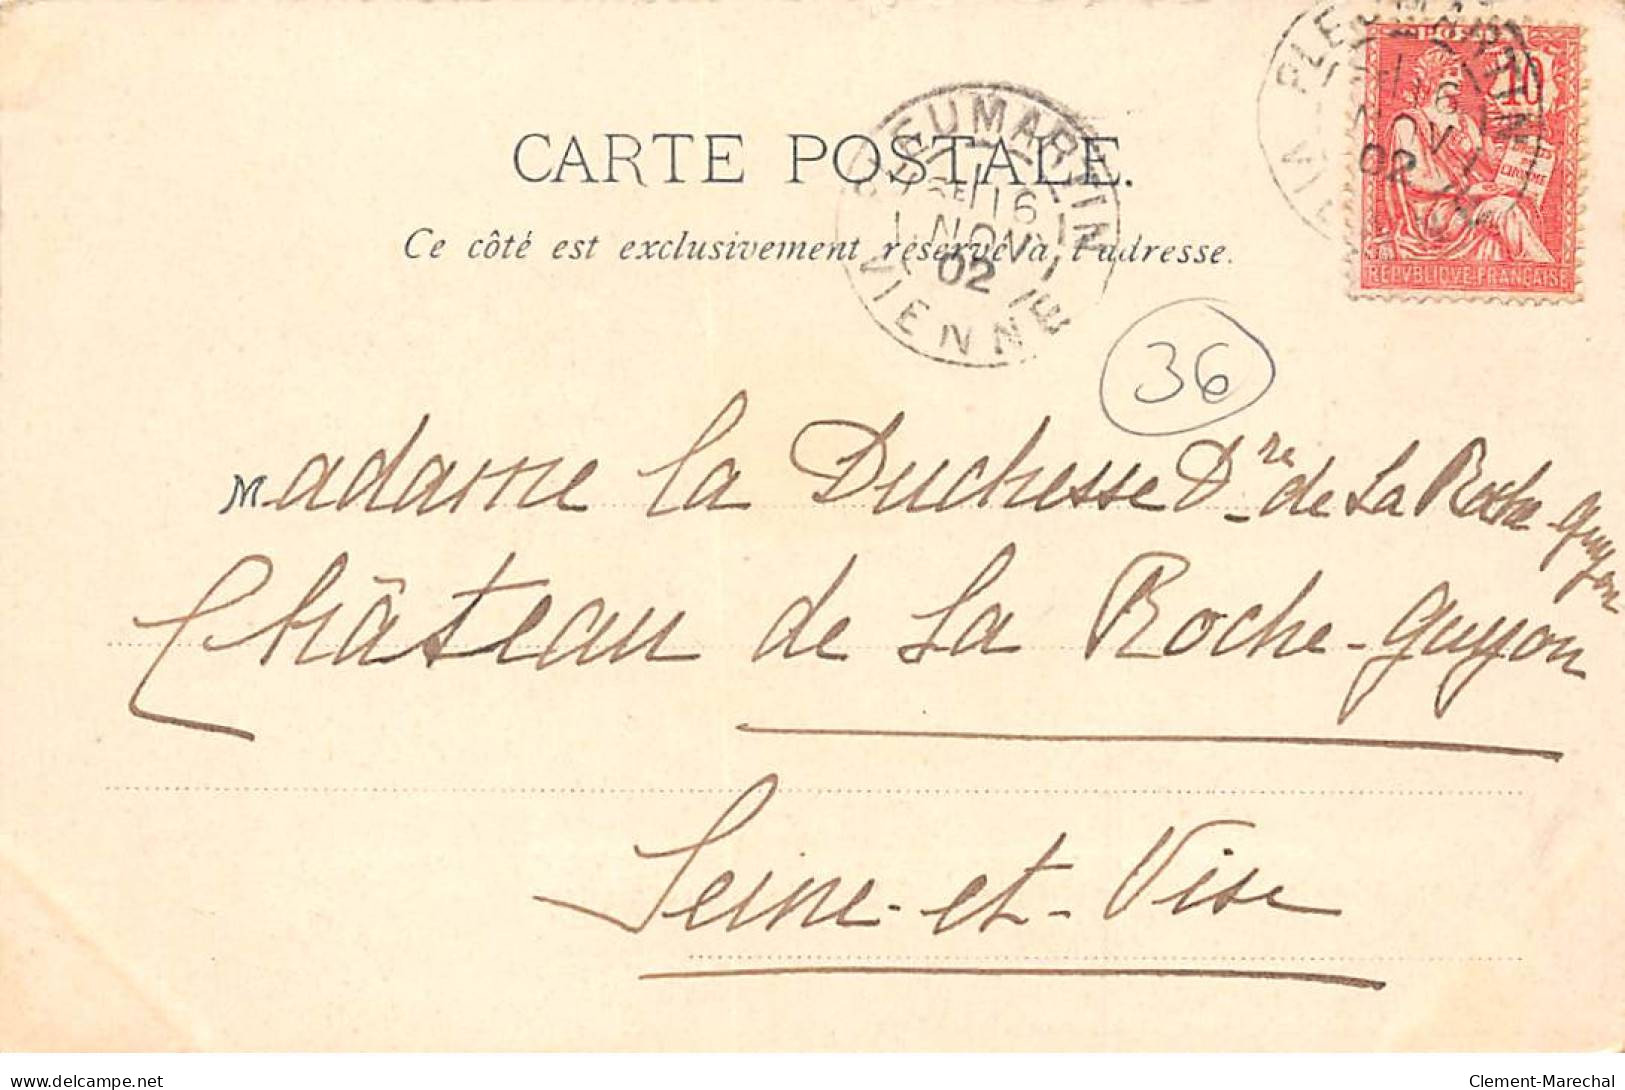 CARTE POSTALE.
Ce côté est exclusivement réservé à l'adresse.
PLEUMARTIN
16
NOV
02
VIENNE
PLEUMARTIN
16
NOV
02
10
REPVBLIQVE FRANÇAISE
36
Madame la Duchesse Dre de La Roche-Guyon
Château de La Roche-Guyon
Seine-et-Oise
delcampe.net
Clement-Marechal